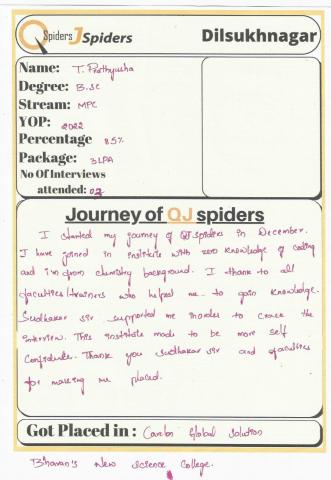 QSpiders JSpiders Dilsukhnagar
Name: T. Prathyusha
Degree: B.Sc
Stream: MPC
YOP: 2022
Percentage 85%
Package: 3LPA
No Of Interviews
attended: 02
Journey of QJ spiders
I started my journey of QJ spiders in December.
I have joined in institute with zero knowledge of coding
and i'm from chemistry background. I thank to all
faculties/trainers who helped me to gain knowledge.
Sudhakar sir supported me inorder to crack the
interview. This institute made to be more self
confidente. Thank you sudhakar sir and faculties
for making me placed.
Got Placed in : Global Solution
Bhavan's New Science College.